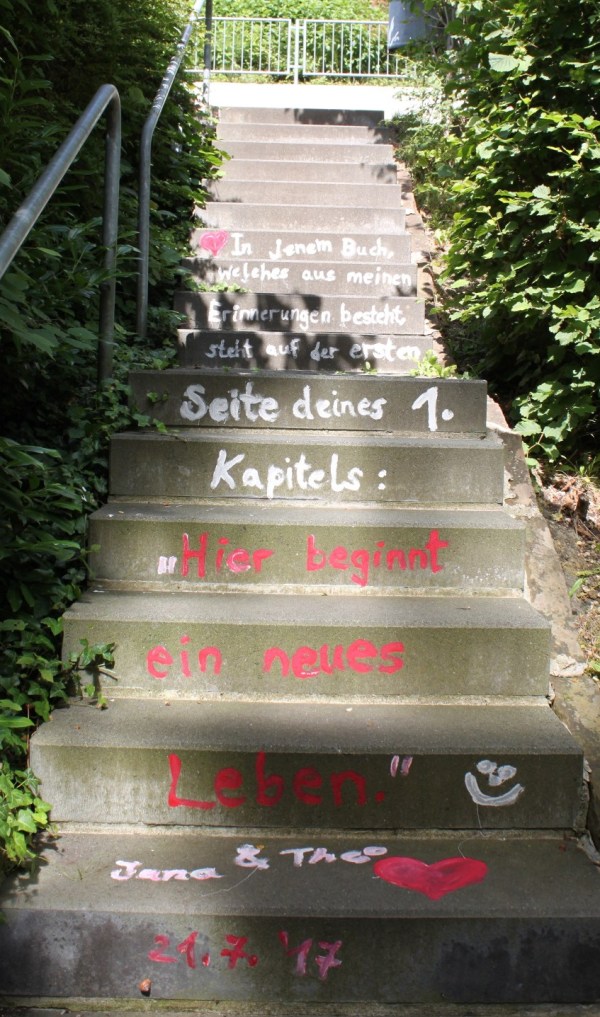 In Jenem Buch,
welches aus meinen
Erinnerungen besteht
steht auf der ersten
Seite deines 1.
Kapitels:
„Hier beginnt
ein neues
Leben."
Jana & Theo
21.7.'17